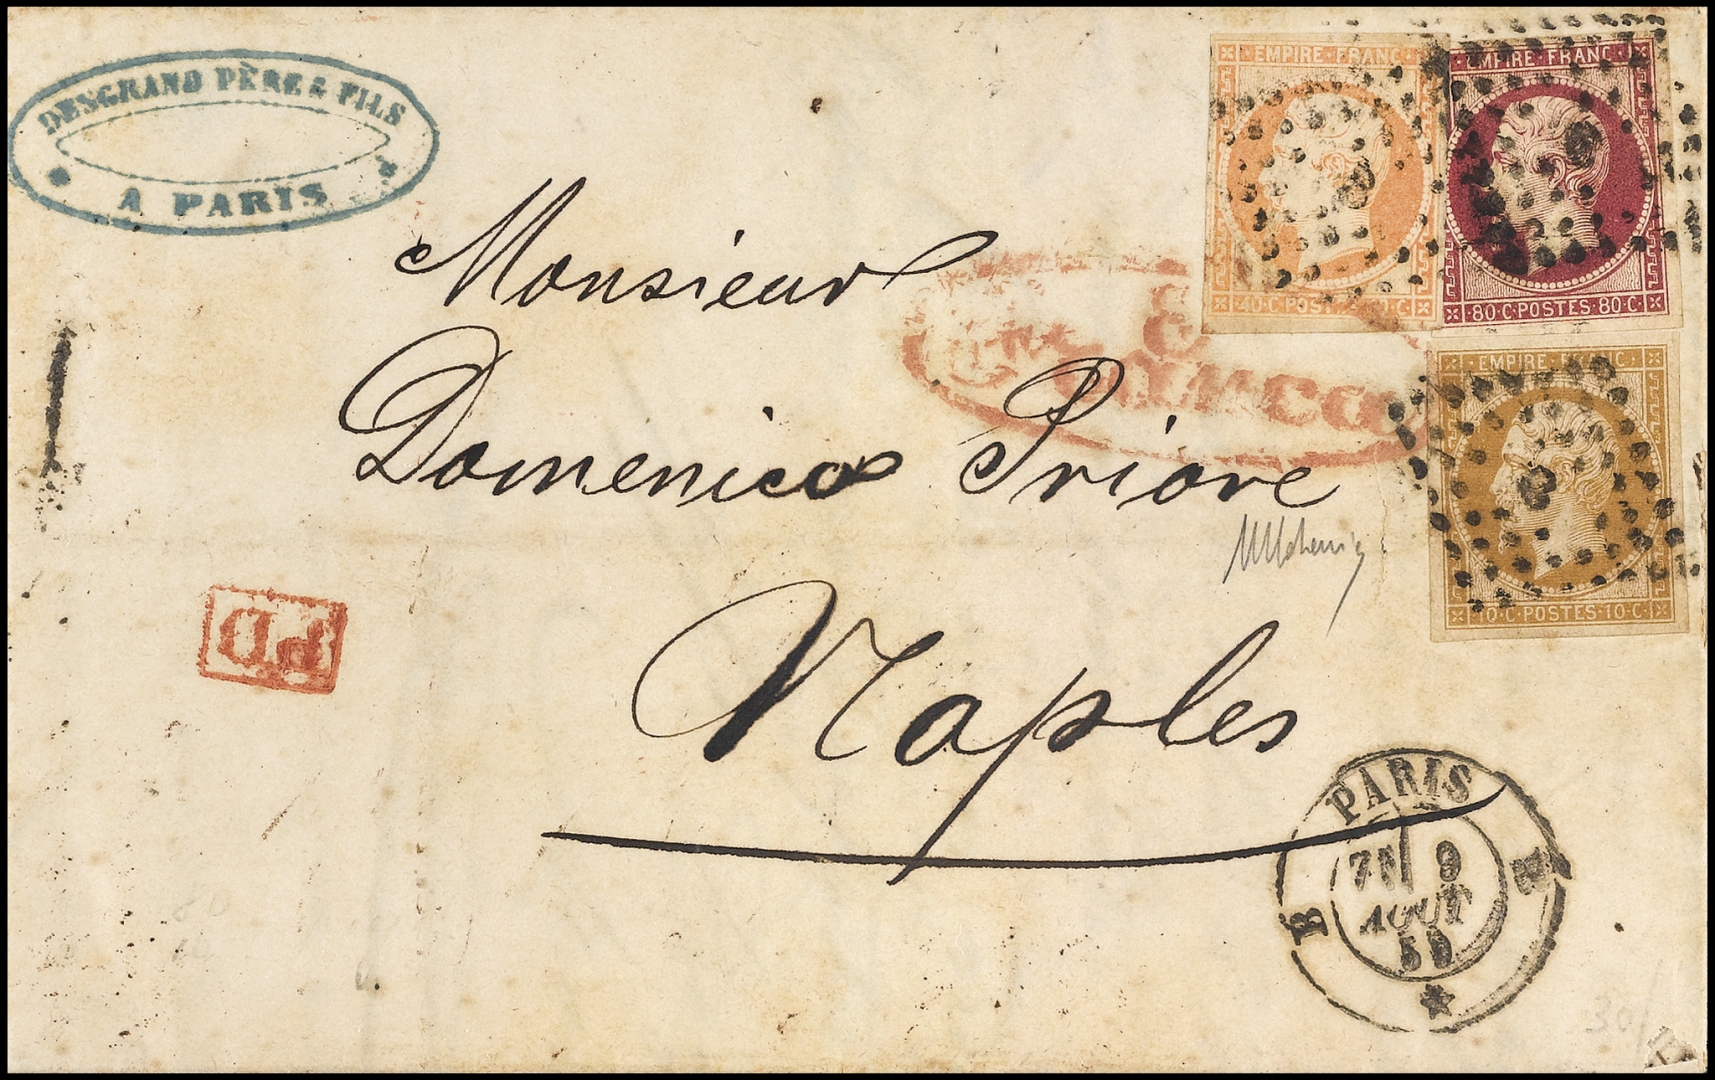 DESGRAND PÈRE & FILS
A PARIS
EMPIRE · FRANC
40 · C · POS
EMPIRE · FRANC
80 · C · POSTES · 80 · C
Monsieur
EMPIRE FRANC
10 · C · POSTES · 10 · C
Domenico Priore
PD
Naples
PARIS
9
AOUT
59
B
30